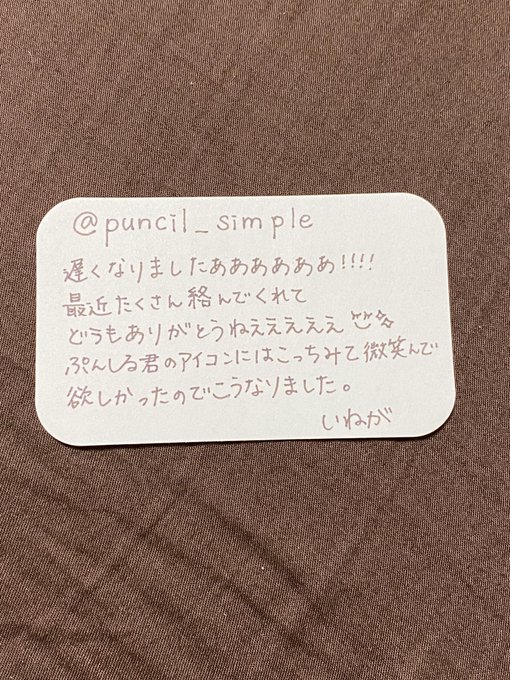 @puncil_simple
遅くなりましたああああああ!!!!
最近たくさん絡んでくれて
どうもありがとうねえええええ
ぷんしる君のアイコンにはこっちみて微笑んで
欲しかったのでこうなりました。
いねが